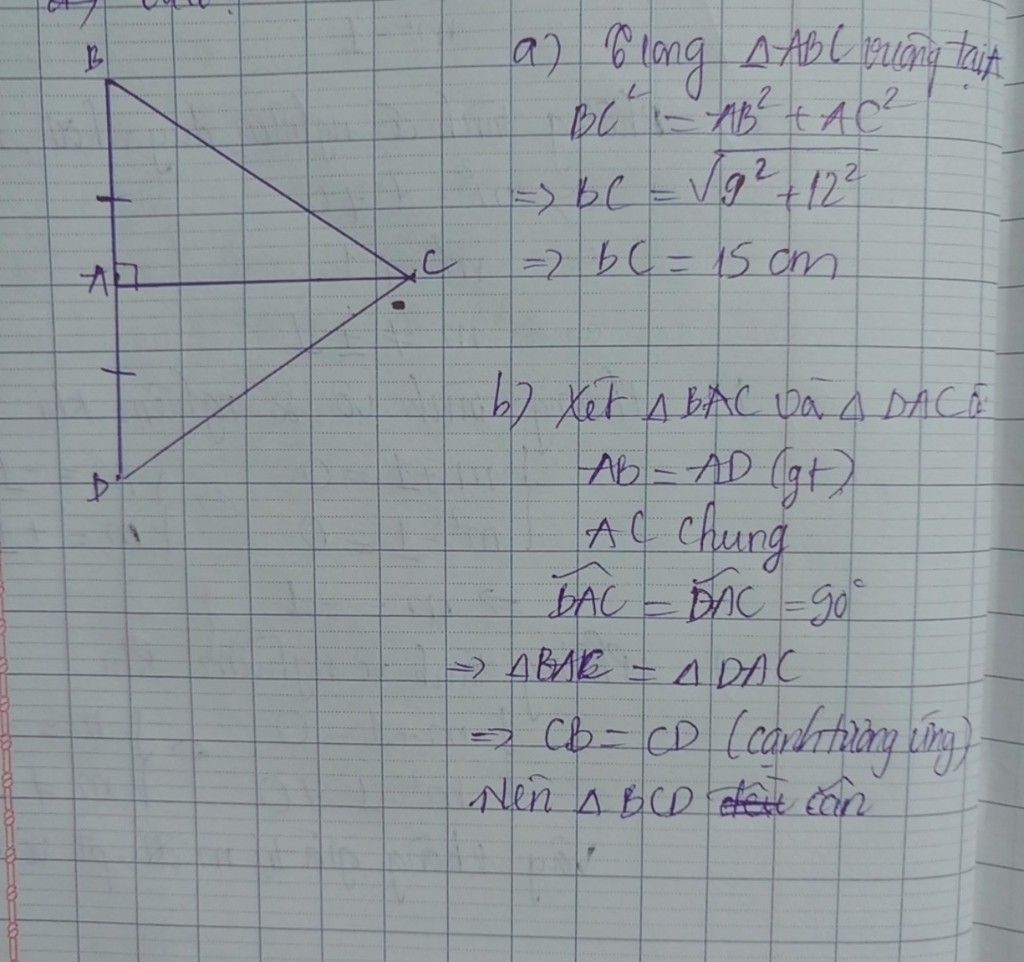 B
A
C
D
a) Trong △ABC vuông tại A
BC² = AB² + AC²
=> BC = √9² + 12²
=> BC = 15 cm
b) Xét △BAC và △DAC có
AB = AD (gt)
AC chung
BAC = DAC = 90°
=> △BAC = △DAC
=> CB = CD (cạnh tương ứng)
Nên △BCD đều cân